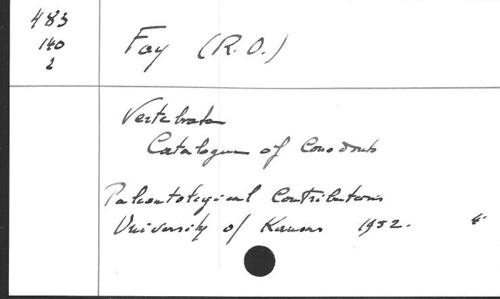 483
140
2
Fay (R.O.)
Vertebrata
Catalogue of Conodonts
Paleontological Contributions
University of Kansas 1952. 4°